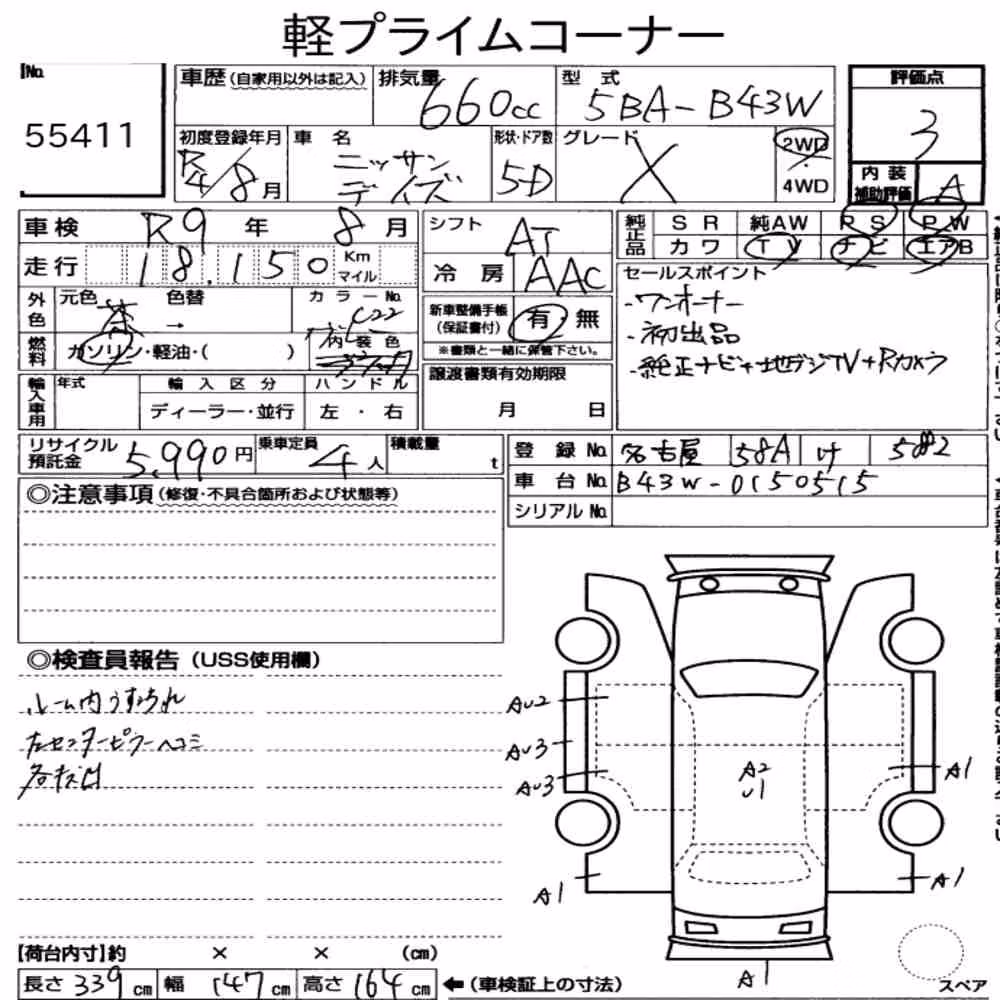 軽プライムコーナー
No.
55411
車歴(自家用以外は記入)
排気量
660cc
型式
5BA-B43W
評価点
3
初度登録年月
R4/8月
車名
ニッサン
デイズ
形状・ドア数
5D
グレード
X
2WD
・
4WD
内装
補助評価
A
車検 R9年 8月
走行 18.150 Km
マイル
シフト AT
冷房 AAC
純正品
SR 純AW PS PW
カワ TV ナビ エアB
外色
元色 茶
色替 →
カラーNo. C22
燃料
ガソリン・軽油・( )
内装色
新車整備手帳
(保証書付)
有 無
※書類と一緒に保管下さい。
セールスポイント
・ワンオーナー
・初出品
・純正ナビ+地デジTV+Rカメラ
輸入車用
年式
輸入区分
ディーラー・並行
ハンドル
左・右
譲渡書類有効期限
月 日
リサイクル
預託金
5,990円
乗車定員
4人
積載量
t
登録No. 名古屋 58A け
車台No. B43W-0150515
シリアルNo.
◎注意事項(修復・不具合箇所および状態等)
◎検査員報告(USS使用欄)
ルーム内うすよごれ
左センターピラーヘコミ
各キズ凹
AU2
AU3
AU3
A2
U1
A1
A1
A1
A1
【荷台内寸】約 × × (cm)
長さ 339cm 幅 147cm 高さ 164cm ←(車検証上の寸法)
スペア